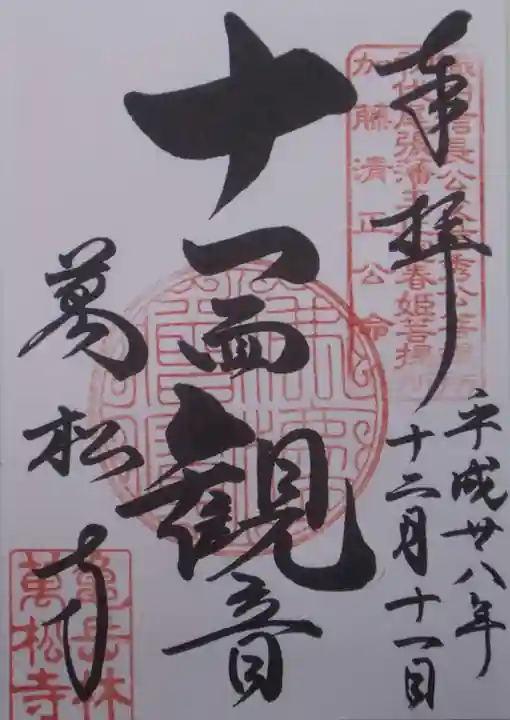 奉拝
平成廿八年
十二月十一日
十一面観音
萬松寺
加藤清正公命
亀岳林
萬松寺